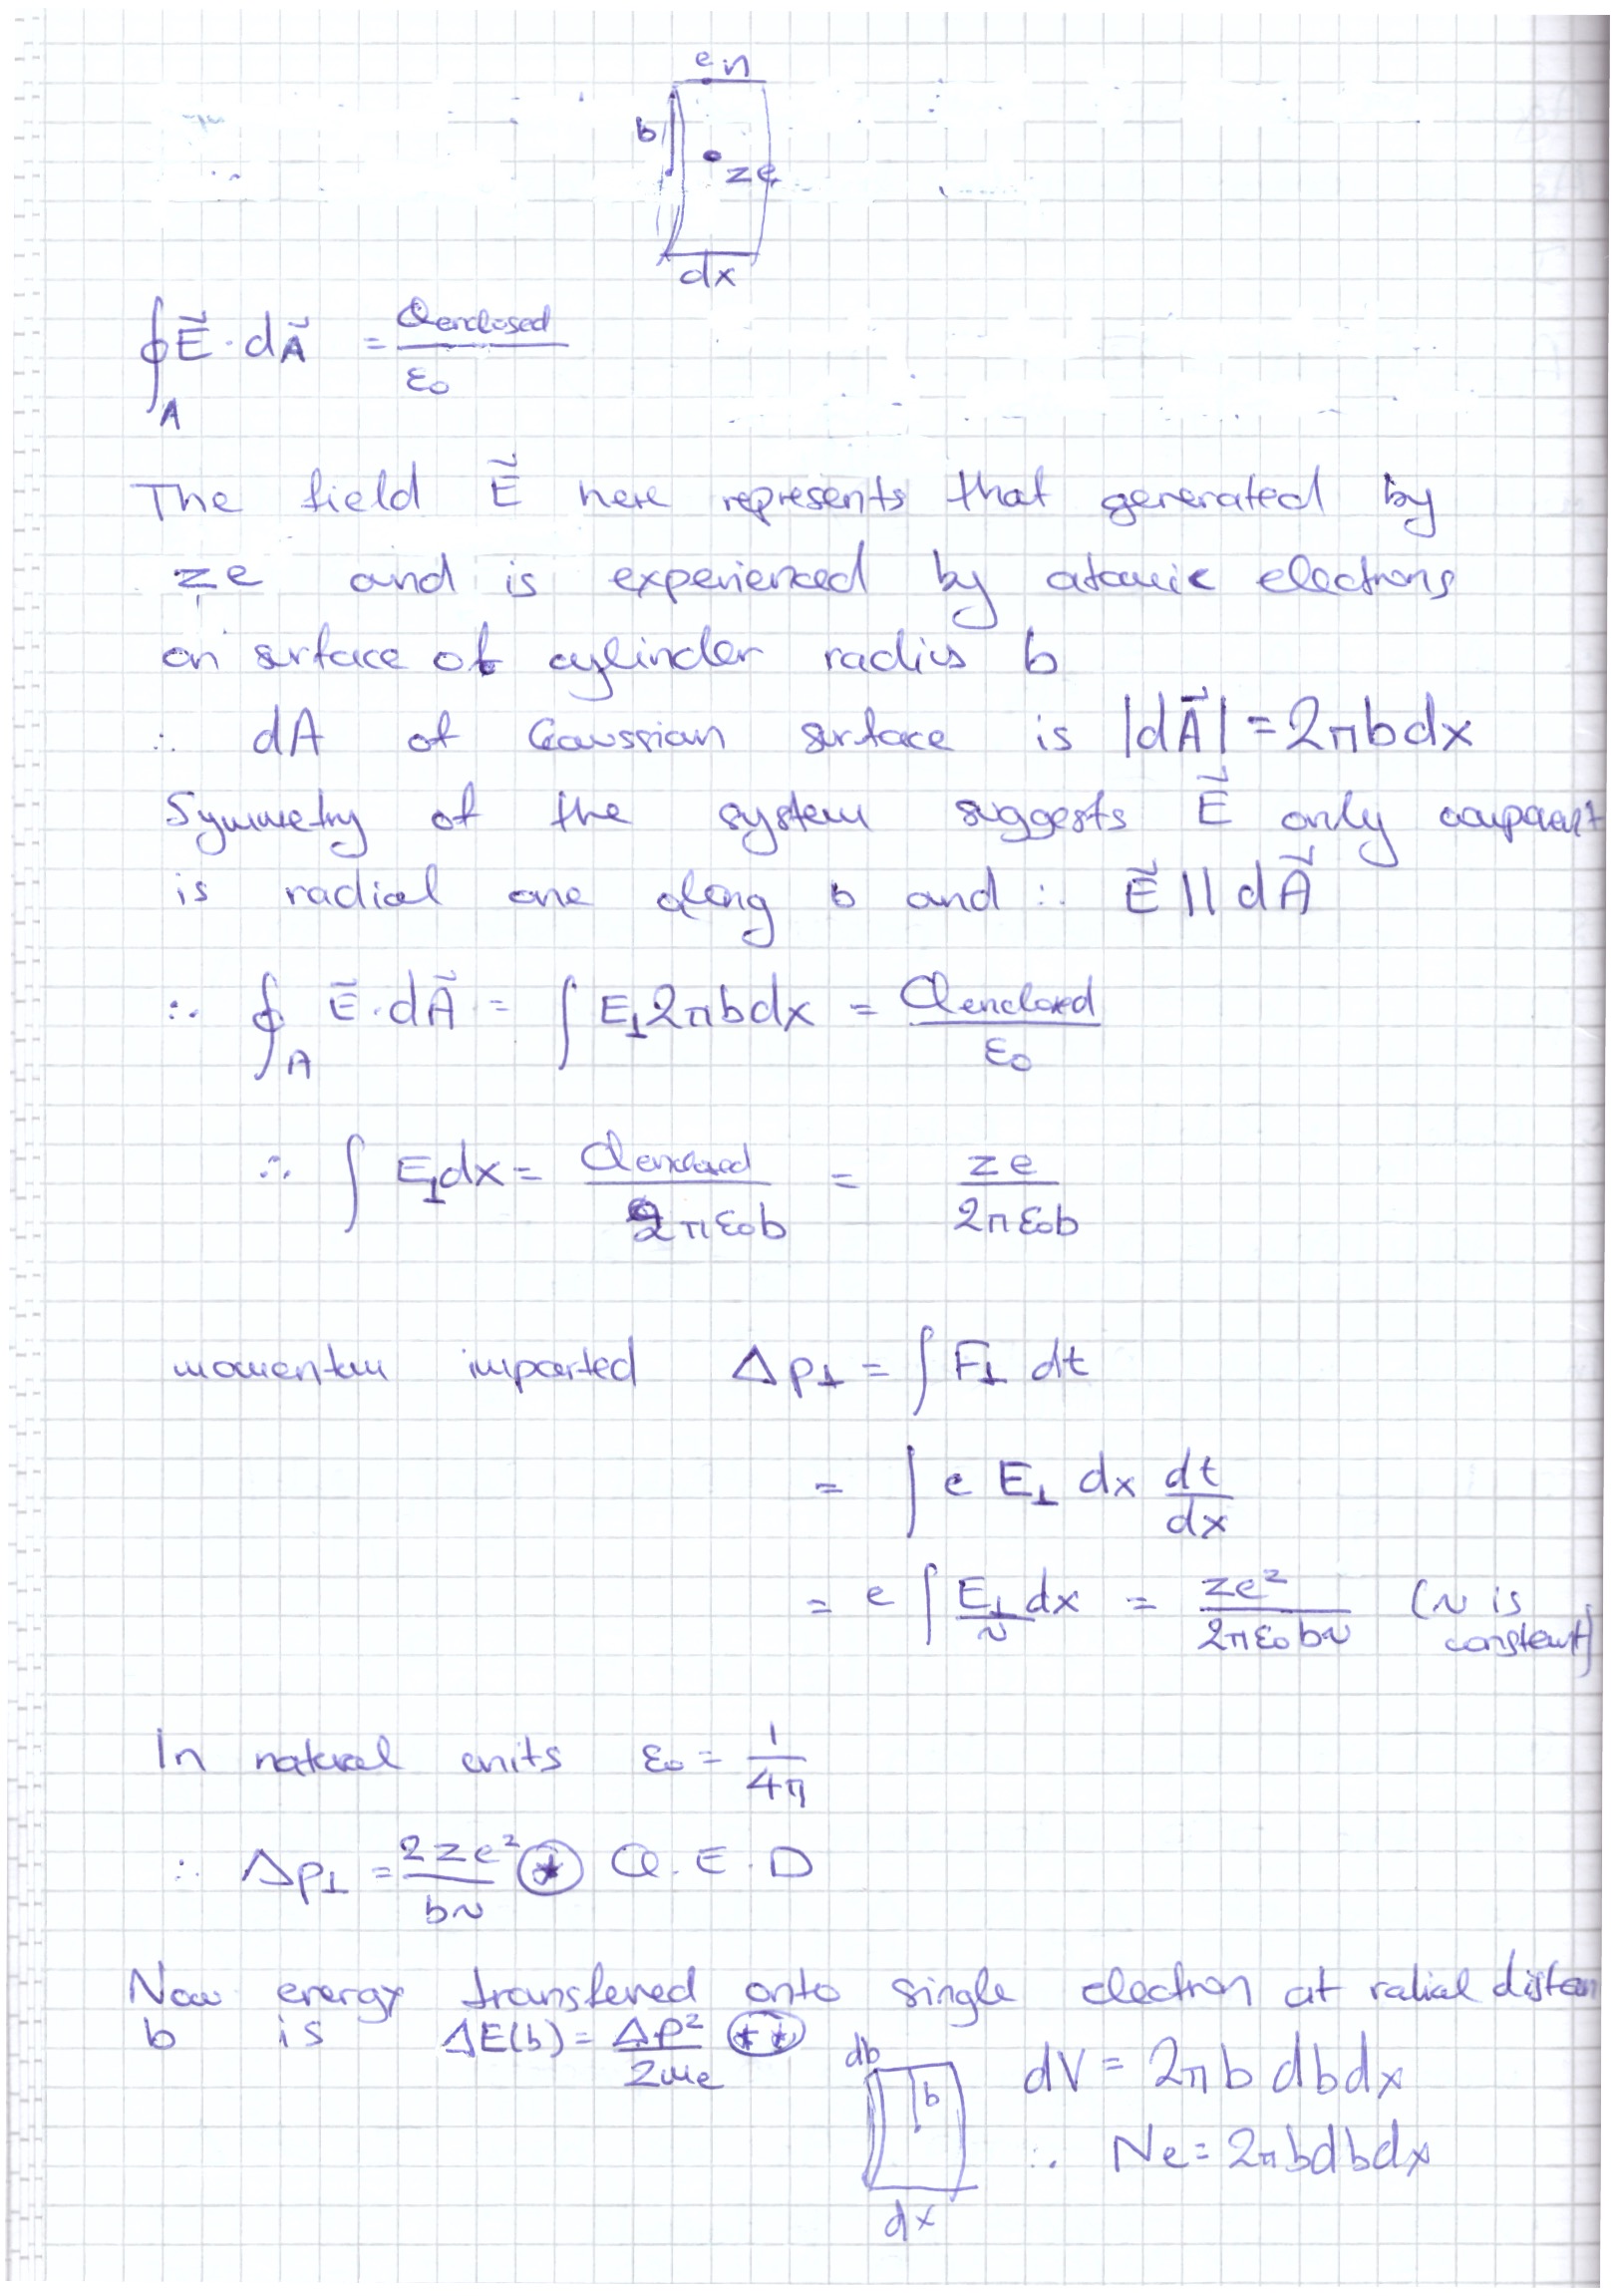 e n
b
ze
dx
∮_A E⃗ · dA⃗ = Qenclosed / ε₀
The field E⃗ here represents that generated by
ze and is experienced by atomic electrons
on surface of cylinder radius b
∴ dA of Gaussian surface is |dA⃗| = 2πbdx
Symmetry of the system suggests E⃗ only
is radial one along b and ∴ E⃗ || dA⃗
∴ ∮_A E⃗ · dA⃗ = ∫ E⊥ 2πbdx = Qenclosed / ε₀
∴ ∫ E⊥dx = Qenclosed / 2πε₀b = ze / 2πε₀b
momentum imparted Δp⊥ = ∫ F⊥ dt
= ∫ e E⊥ dx dt/dx
= e ∫ E⊥/v dx = ze² / 2πε₀bv (v is constant)
In natural units ε₀ = 1/4π
∴ Δp⊥ = 2ze² / bv ⊛ Q.E.D
Now energy transferred onto single electron at radial distan
b is ΔE(b) = Δp² / 2me (**)
db
b
dx
dV = 2πb dbdx
∴ Ne = 2πbdbdx